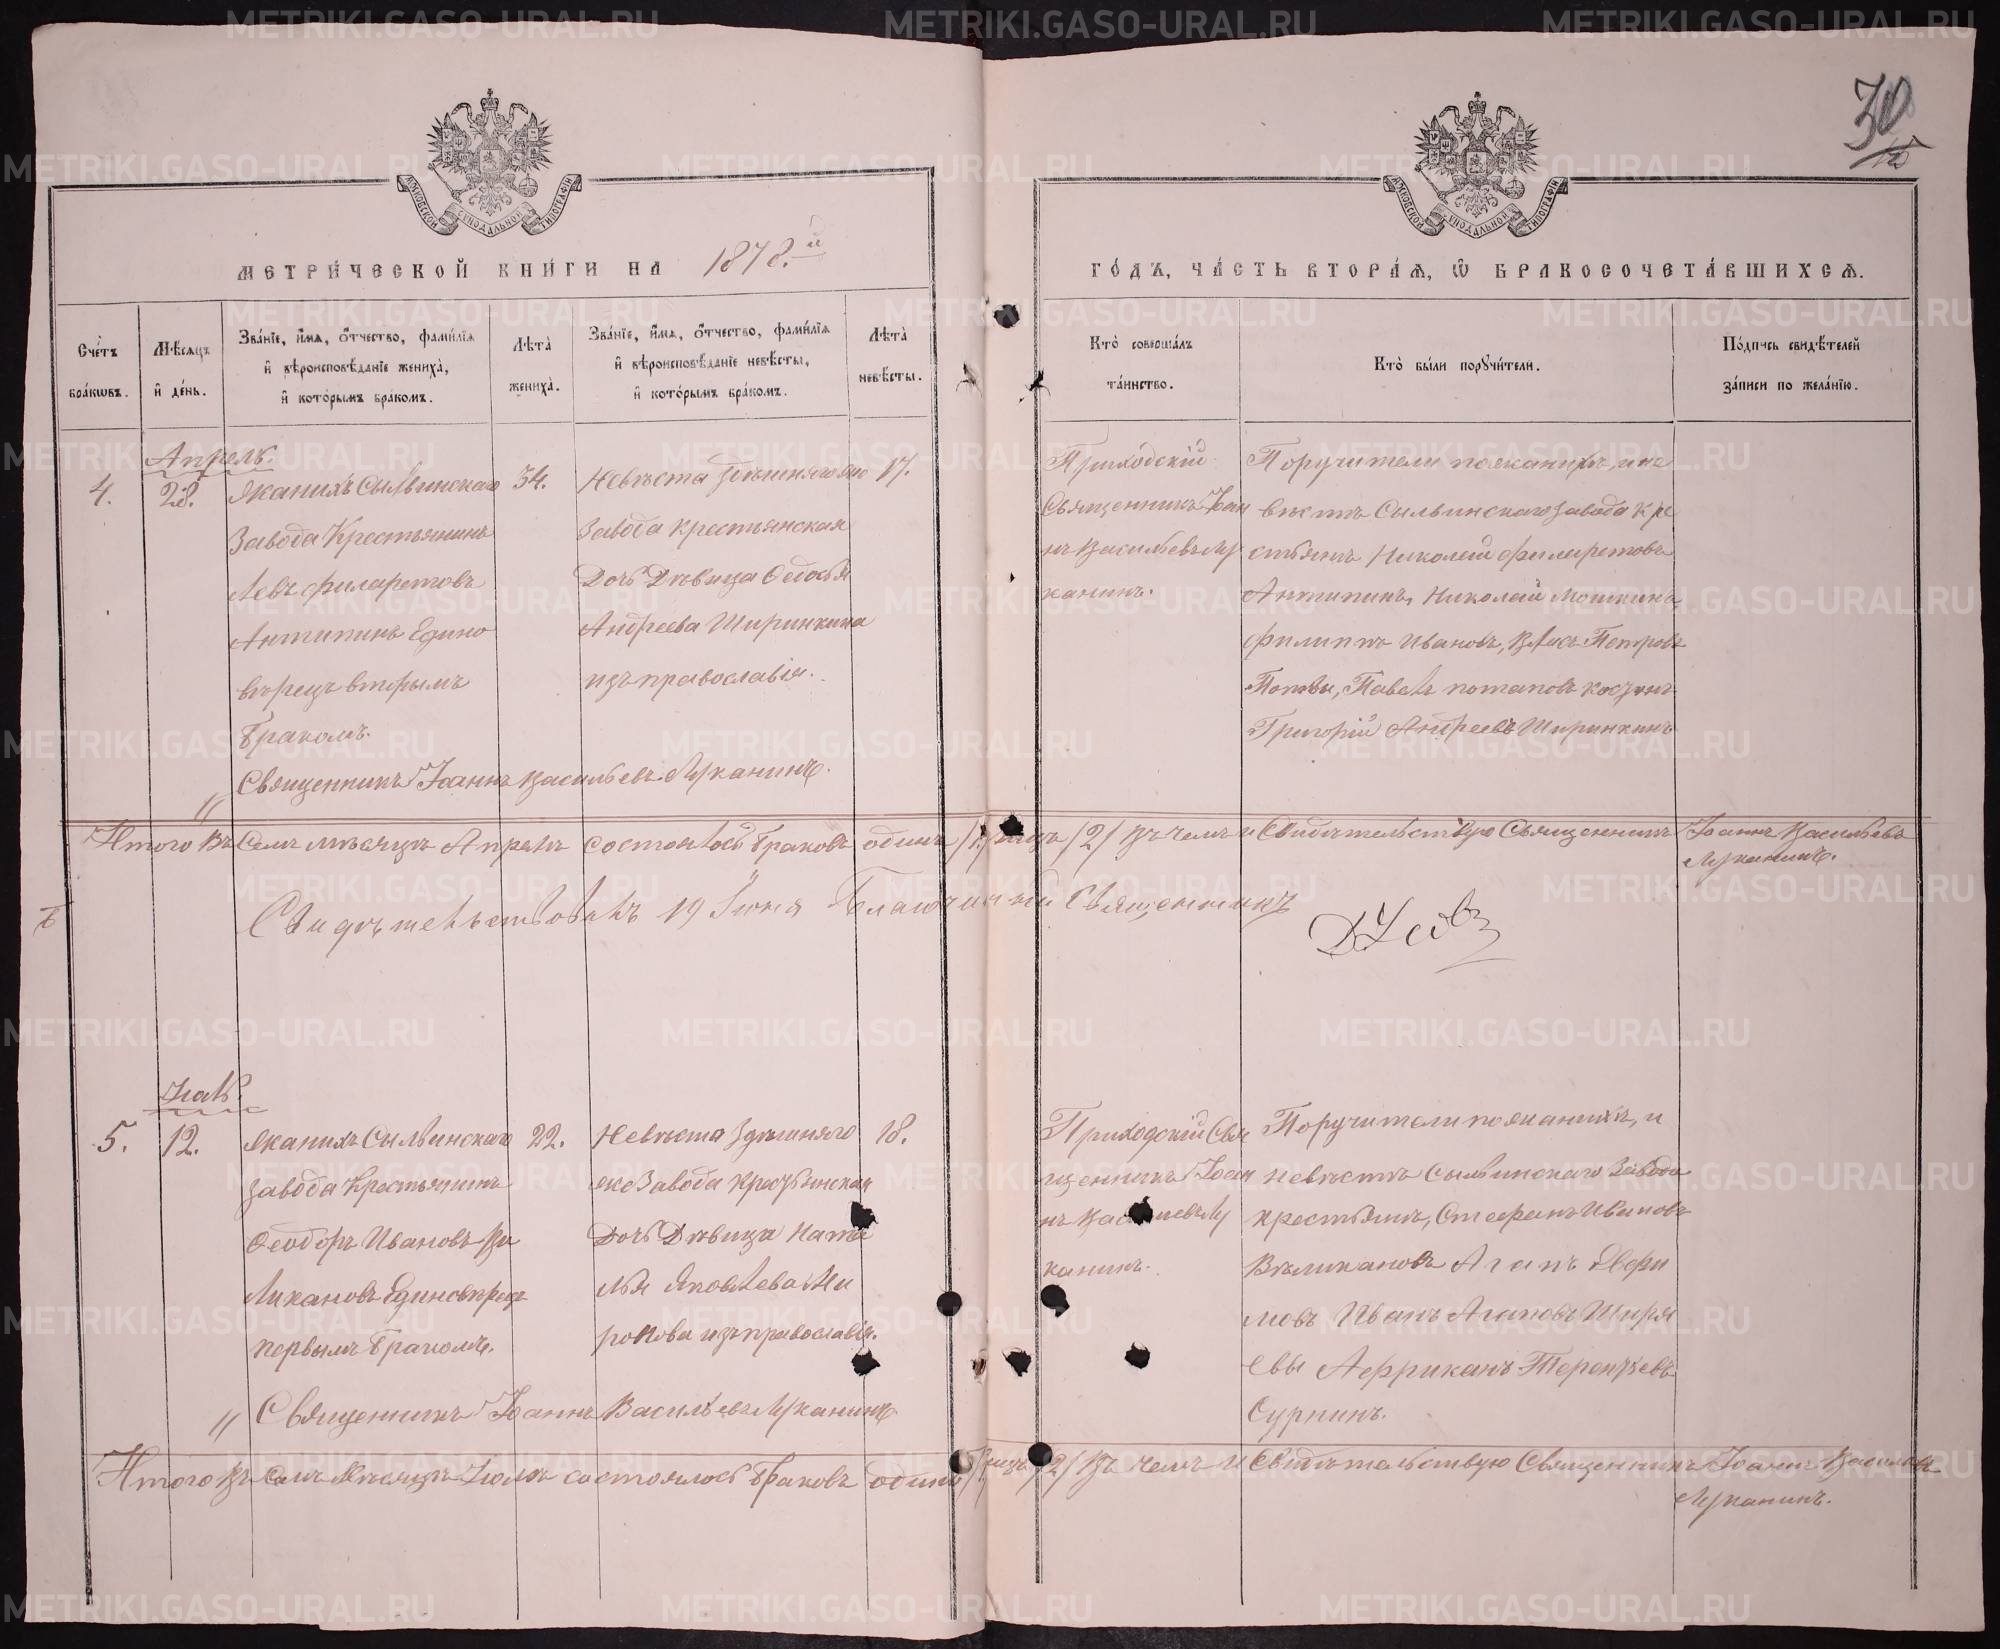 30
МОСКОВСКОЙ СѴНОДАЛЬНОЙ ТИПОГРАФІИ
МОСКОВСКОЙ СѴНОДАЛЬНОЙ ТИПОГРАФІИ
МЕТРИ́ЧЕСКОЙ КНИ́ГИ НА 1878.й
ГО́ДЪ, ЧА́СТЬ ВТОРА́Ѧ, Ѿ БРАКОСОЧЕТА́ВШИХСѦ.
Сче́тъ бра́кѡвъ.
Мѣ́сѧцъ и҆ де́нь.
Зва́нїе, и҆́мѧ, ѻ҆́тчество, фами́лїѧ и҆ вѣроисповѣ́данїе жениха̀, и҆ кото́рымъ бра́комъ.
Лѣта̀ жениха̀.
Зва́нїе, и҆́мѧ, ѻ҆́тчество, фами́лїѧ и҆ вѣроисповѣ́данїе невѣ́сты, и҆ кото́рымъ бра́комъ.
Лѣта̀ невѣ́сты.
Кто̀ соверша́лъ та́инство.
Кто̀ бы́ли порꙋчи́тели.
По́дпись свидѣ́телей за́писи по жела́нїю.
Апрель.
4.
28.
Жанихъ Сылвинскаго
Завода Крестьянинъ
Левъ Филаретовъ
Антипинъ Едино
вѣрецъ вторымъ
бракомъ.
34.
Невѣста здѣшняго же
Завода крестьянская
Дочь Дѣвица Ѳедосья
Андреева Ширинкина
изъ православія.
17.
Приходскій
Священникъ Іоан
нъ Васильевъ Лу
канинъ.
Поручители по жанихѣ, и не
вѣстѣ Сылвинскаго Завода Кре
стьянъ Николай Филаретовъ
Антипинъ, Николай Мошкинъ,
Филиппъ Ивановъ, Власъ Петровъ
Поповы, Павелъ Потаповъ
Григорій Андреевъ Ширинкинъ
Священникъ Іоаннъ Васильевъ Луканинъ.
Итого Въ Семъ мѣсяцѣ Апрѣлѣ состоялось браковъ одинъ /1/ лицъ /2/ Въ чемъ и Свидѣтельствую Священникъ Іоаннъ Васильевъ
Луканинъ.
Свидѣтельствовалъ 19 Іюня Благочинный Священникъ
Іюль.
5.
12.
Жанихъ Сылвинскаго
завода Крестьянинъ
Ѳеодоръ Ивановъ Ве
ликановъ Единовѣрецъ
первымъ бракомъ.
22.
Невѣста Здѣшняго
же Завода крестьянская
Дочь Дѣвица Ната
лья Яковлева Ми
ронова изъ православія.
18.
Приходскій Свя
щенникъ Іоан
нъ Васильевъ Лу
канинъ.
Поручители по жанихѣ, и
невѣстѣ Сылвинскаго Завода
крестьянъ, Стефанъ Ивановъ
Великановъ Агапъ Ефри
мовъ Иванъ Агаповъ Ширя
евы Африканъ Терентьевъ
Сурнинъ.
Священникъ Іоаннъ Васильевъ Луканинъ
Итого Въ Семъ Мѣсяцѣ Іюлѣ состоялось браковъ одинъ лицъ /2/ Въ чемъ и Свидѣтельствую Священникъ Іоаннъ Васильевъ
Луканинъ.
METRIKI.GASO-URAL.RU